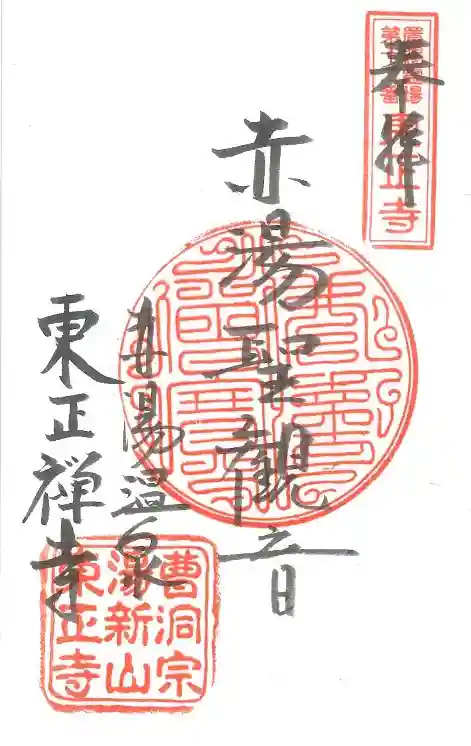 奉拝
東正寺
赤湯聖観音
赤湯温泉
東正禅寺
曹洞宗
湯新山
東正寺